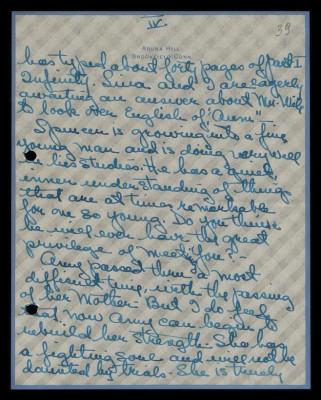 IV.
39
ADUNA HILL
BROOKFIELD, CONN.
has typed about forty pages of Part I
Infinity. Sina and I are eagerly
awaiting an answer about Mr.
to look over English of "Aum"
Spencer is growing into a fine
young man and is doing very well
in his studies. He has a quiet
inner understanding of things
that are at times remarkable
for one so young. Do you think
he will ever have the great
privilege of meeting you? -
Amy passed thru a most
difficult time, with the passing
of her Mother - But I do feel
that now Amy can begin
rebuild her strength. She has
a fighting soul and will not be
daunted by trials. She is truly